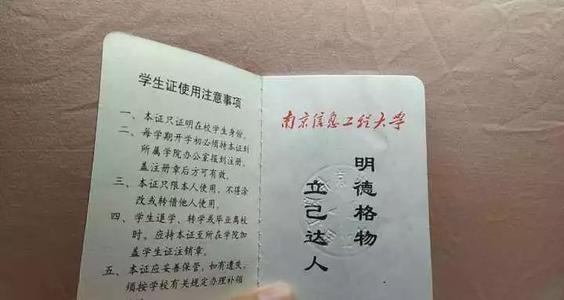 学生证使用注意事项
一、本证只证明在校学生身份。
二、每学期开学初必须持本证到
所属学院办公室报到注册,
盖注册章后方可有效。
三、本证只限本人使用,不得涂
改或转借他人使用。
四、学生退学、转学或毕业离校
时,应持本证至所在学院加
盖学生证注销章。
五、本证应妥善保管,如有遗失,
须按学校有关规定办理补领
南京信息工程大学
明德格物
立己达人